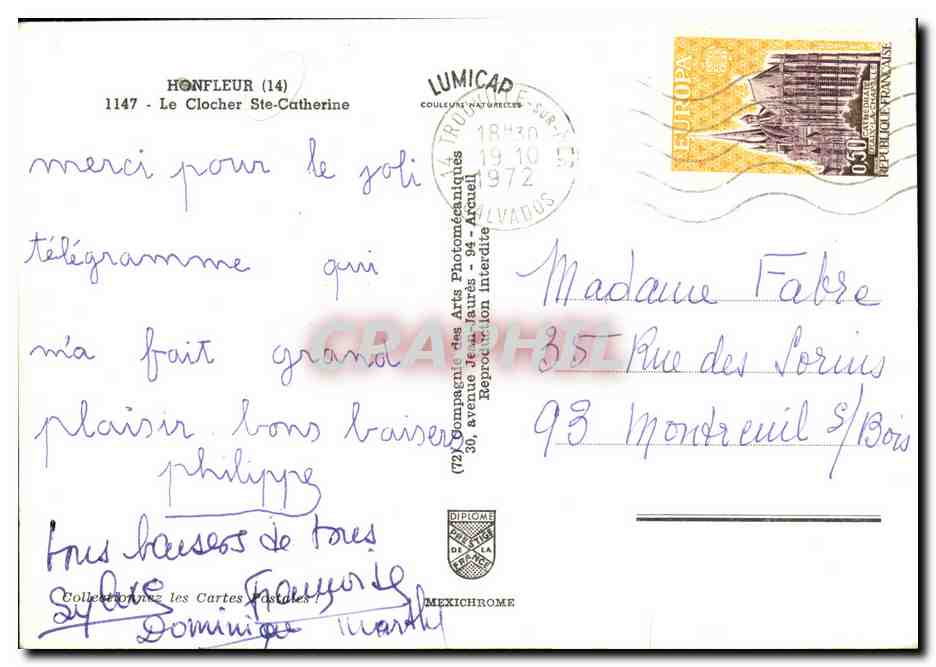 HONFLEUR (14)
1147 - Le Clocher Ste-Catherine
LUMICAP
COULEURS NATURELLES
14 TROUVILLE-SUR-MER
18H30
19 10
1972
CALVADOS
EUROPA
0,50
CATHÉDRALE
D'AIX-LA-CHAPELLE
RÉPUBLIQUE FRANÇAISE
merci pour le joli
télégramme qui
m'a fait grand
plaisir. bons baisers
philippe
bons baisers de tous
Sylvie Françoise
Dominique Marthe
Collectionnez les Cartes Postales !
(72) Compagnie des Arts Photomécaniques
30, avenue Jean-Jaurès - 94 - Arcueil
Reproduction interdite
Madame Fabre
35 Rue des Sorins
93 Montreuil s/Bois
DIPLOME
PRESTIGE
DE LA
FRANCE
MEXICHROME
CRAPHIL